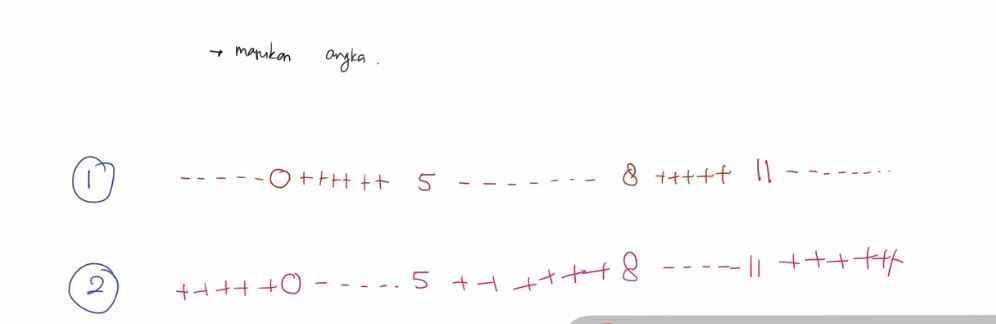 → masukan angka.
1 -----0++++++ 5 -------- 8 +++++ 11 --------
2 +++++0------5 ++ +++++8 -----11 ++++++